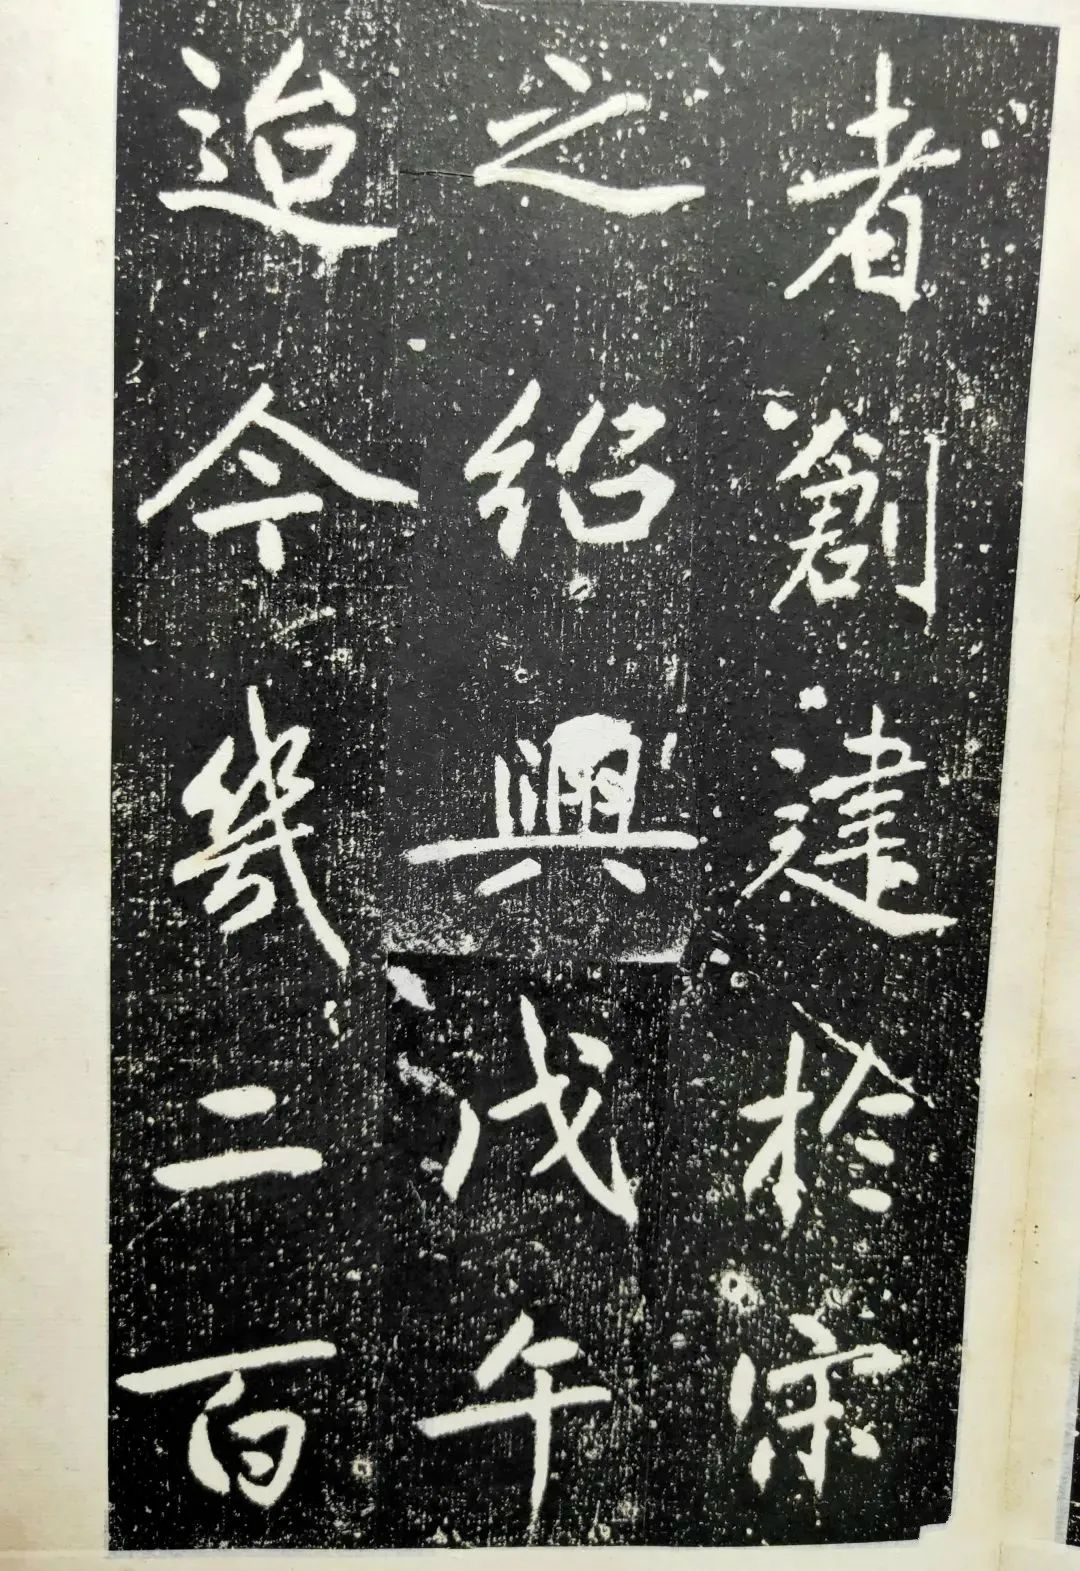 者創建於宋
之紹興戊午
迨今幾二百